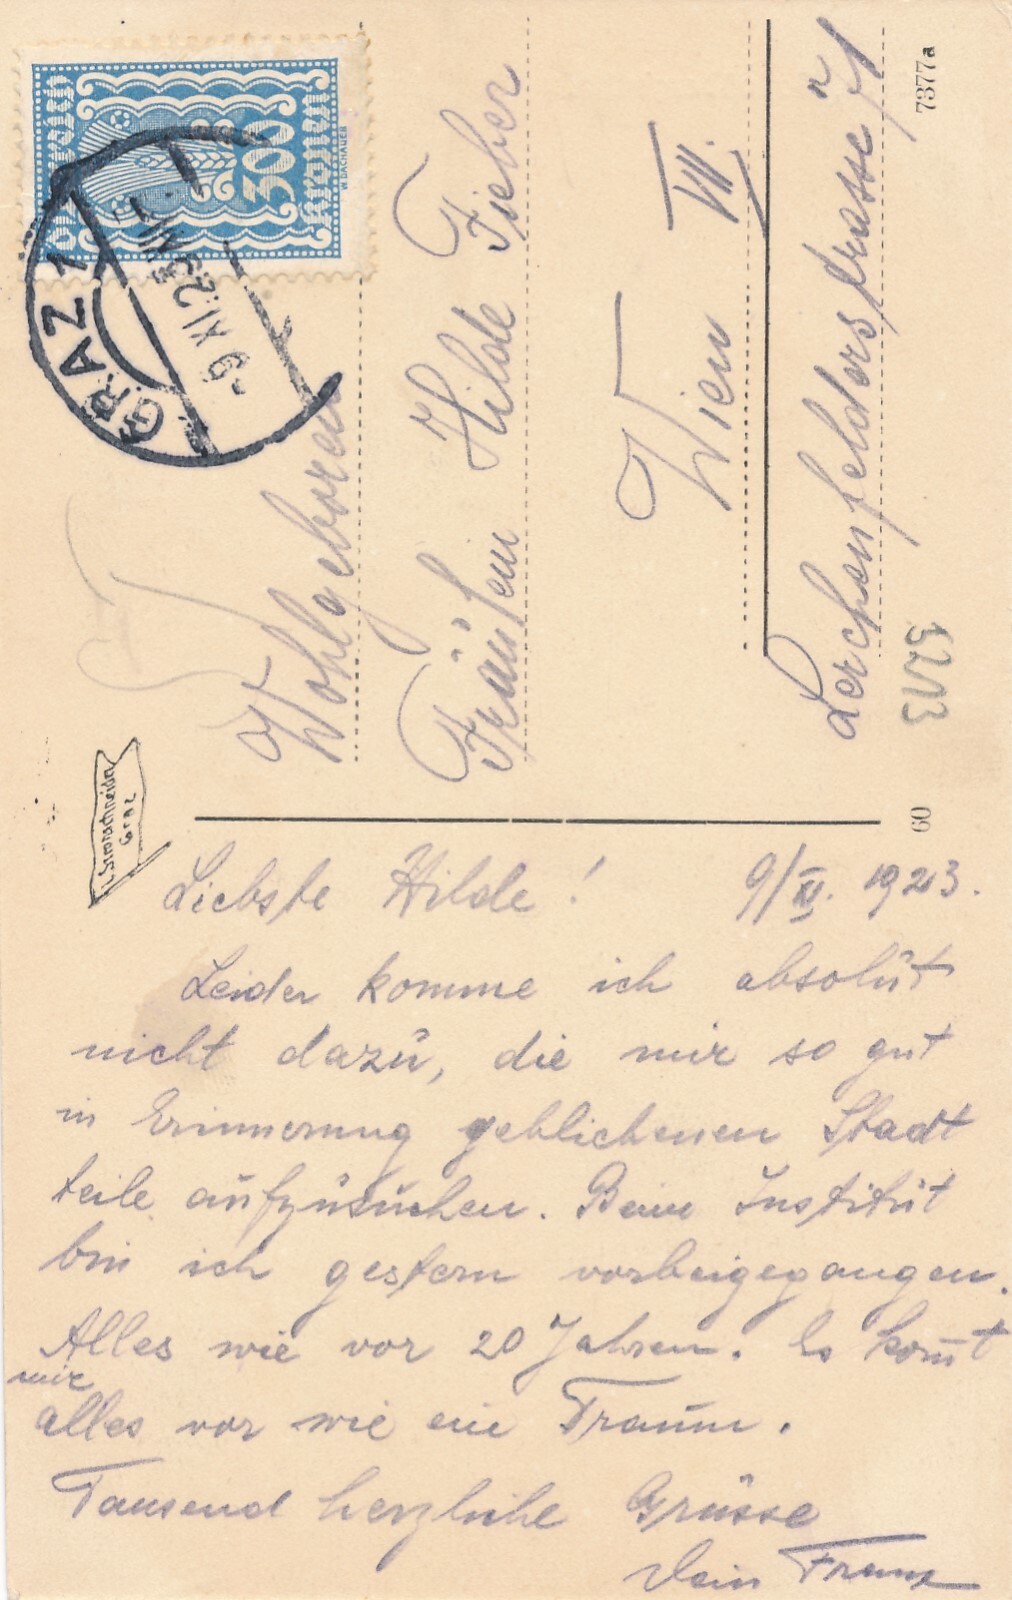 300
Kronen
W. DACHAUER
GRAZ 1
-9. XI. 23
Wohlgeboren
Fräulein Hilde Fieber
Wien VII.
Lerchenfelderstrasse
7377a
60
Graz
Liebste Hilde! 9/XI. 1923.
Leider komme ich absolut
nicht dazu, die mir so gut
in Erinnerung geblichenen Stadt
teile aufzusuchen. Beim Institut
bin ich gestern vorbeigegangen.
Alles wie vor 20 Jahren. Es kom̅t
mir
alles vor wie ein Traum.
Tausend herzliche Grüsse
Dein Franz